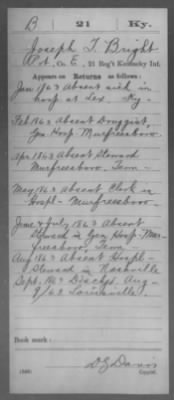 B 21 Ky.
Joseph T. Bright
Pvt., Co. E, 21 Reg't Kentucky Inf.
Appears on Returns as follows:
Jan 1863 Absent sick in
hosp at Lex. Ky
Feb 1863 Absent Druggist,
Gen Hosp Murfreesboro
Apr 1863 Absent Steward
Murfreesboro, Tenn
May 1863 Absent Clerk in
Hospl- Murfreesboro
June & July 1863 Absent
Steward in Gen Hosp- Mur-
freesboro, Tenn
Aug 1863 Absent Hospl-
Steward in Nashville
Sept. 1863 Dischgd. Aug-
9/63 Louisville
Book mark:
(546) D G Davis
Copyist.